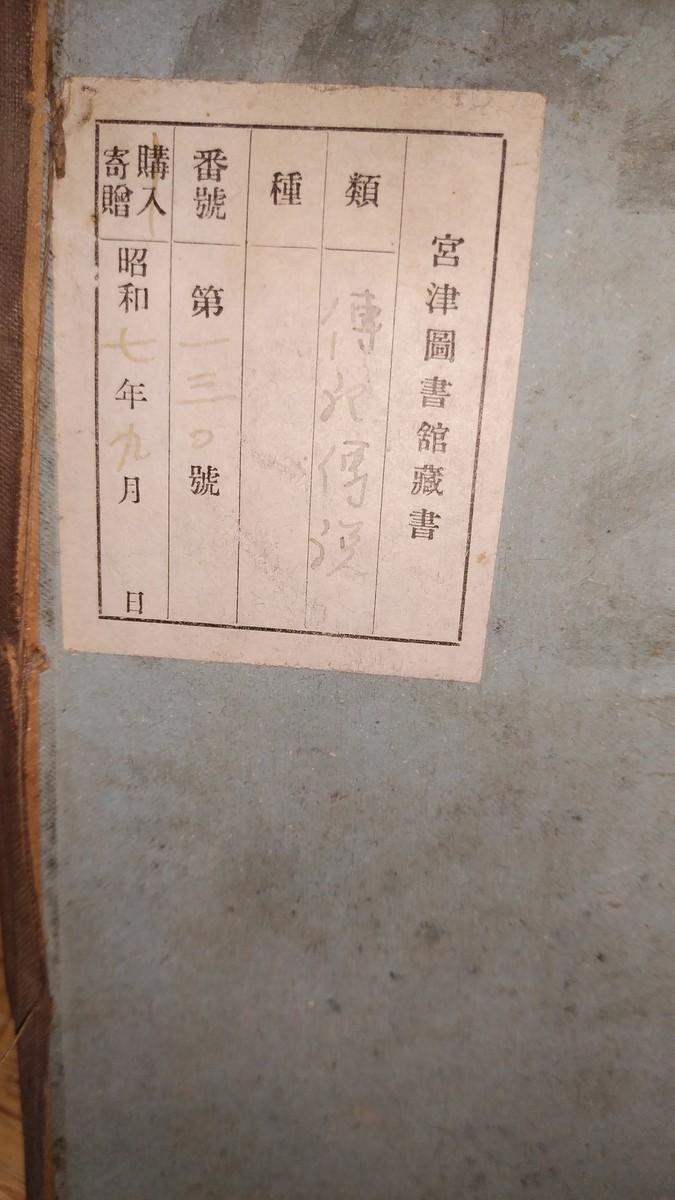 宮津圖書館藏書
類 傳記傳説
種
番號 第一三〇號
購入
寄贈
昭和七年九月 日